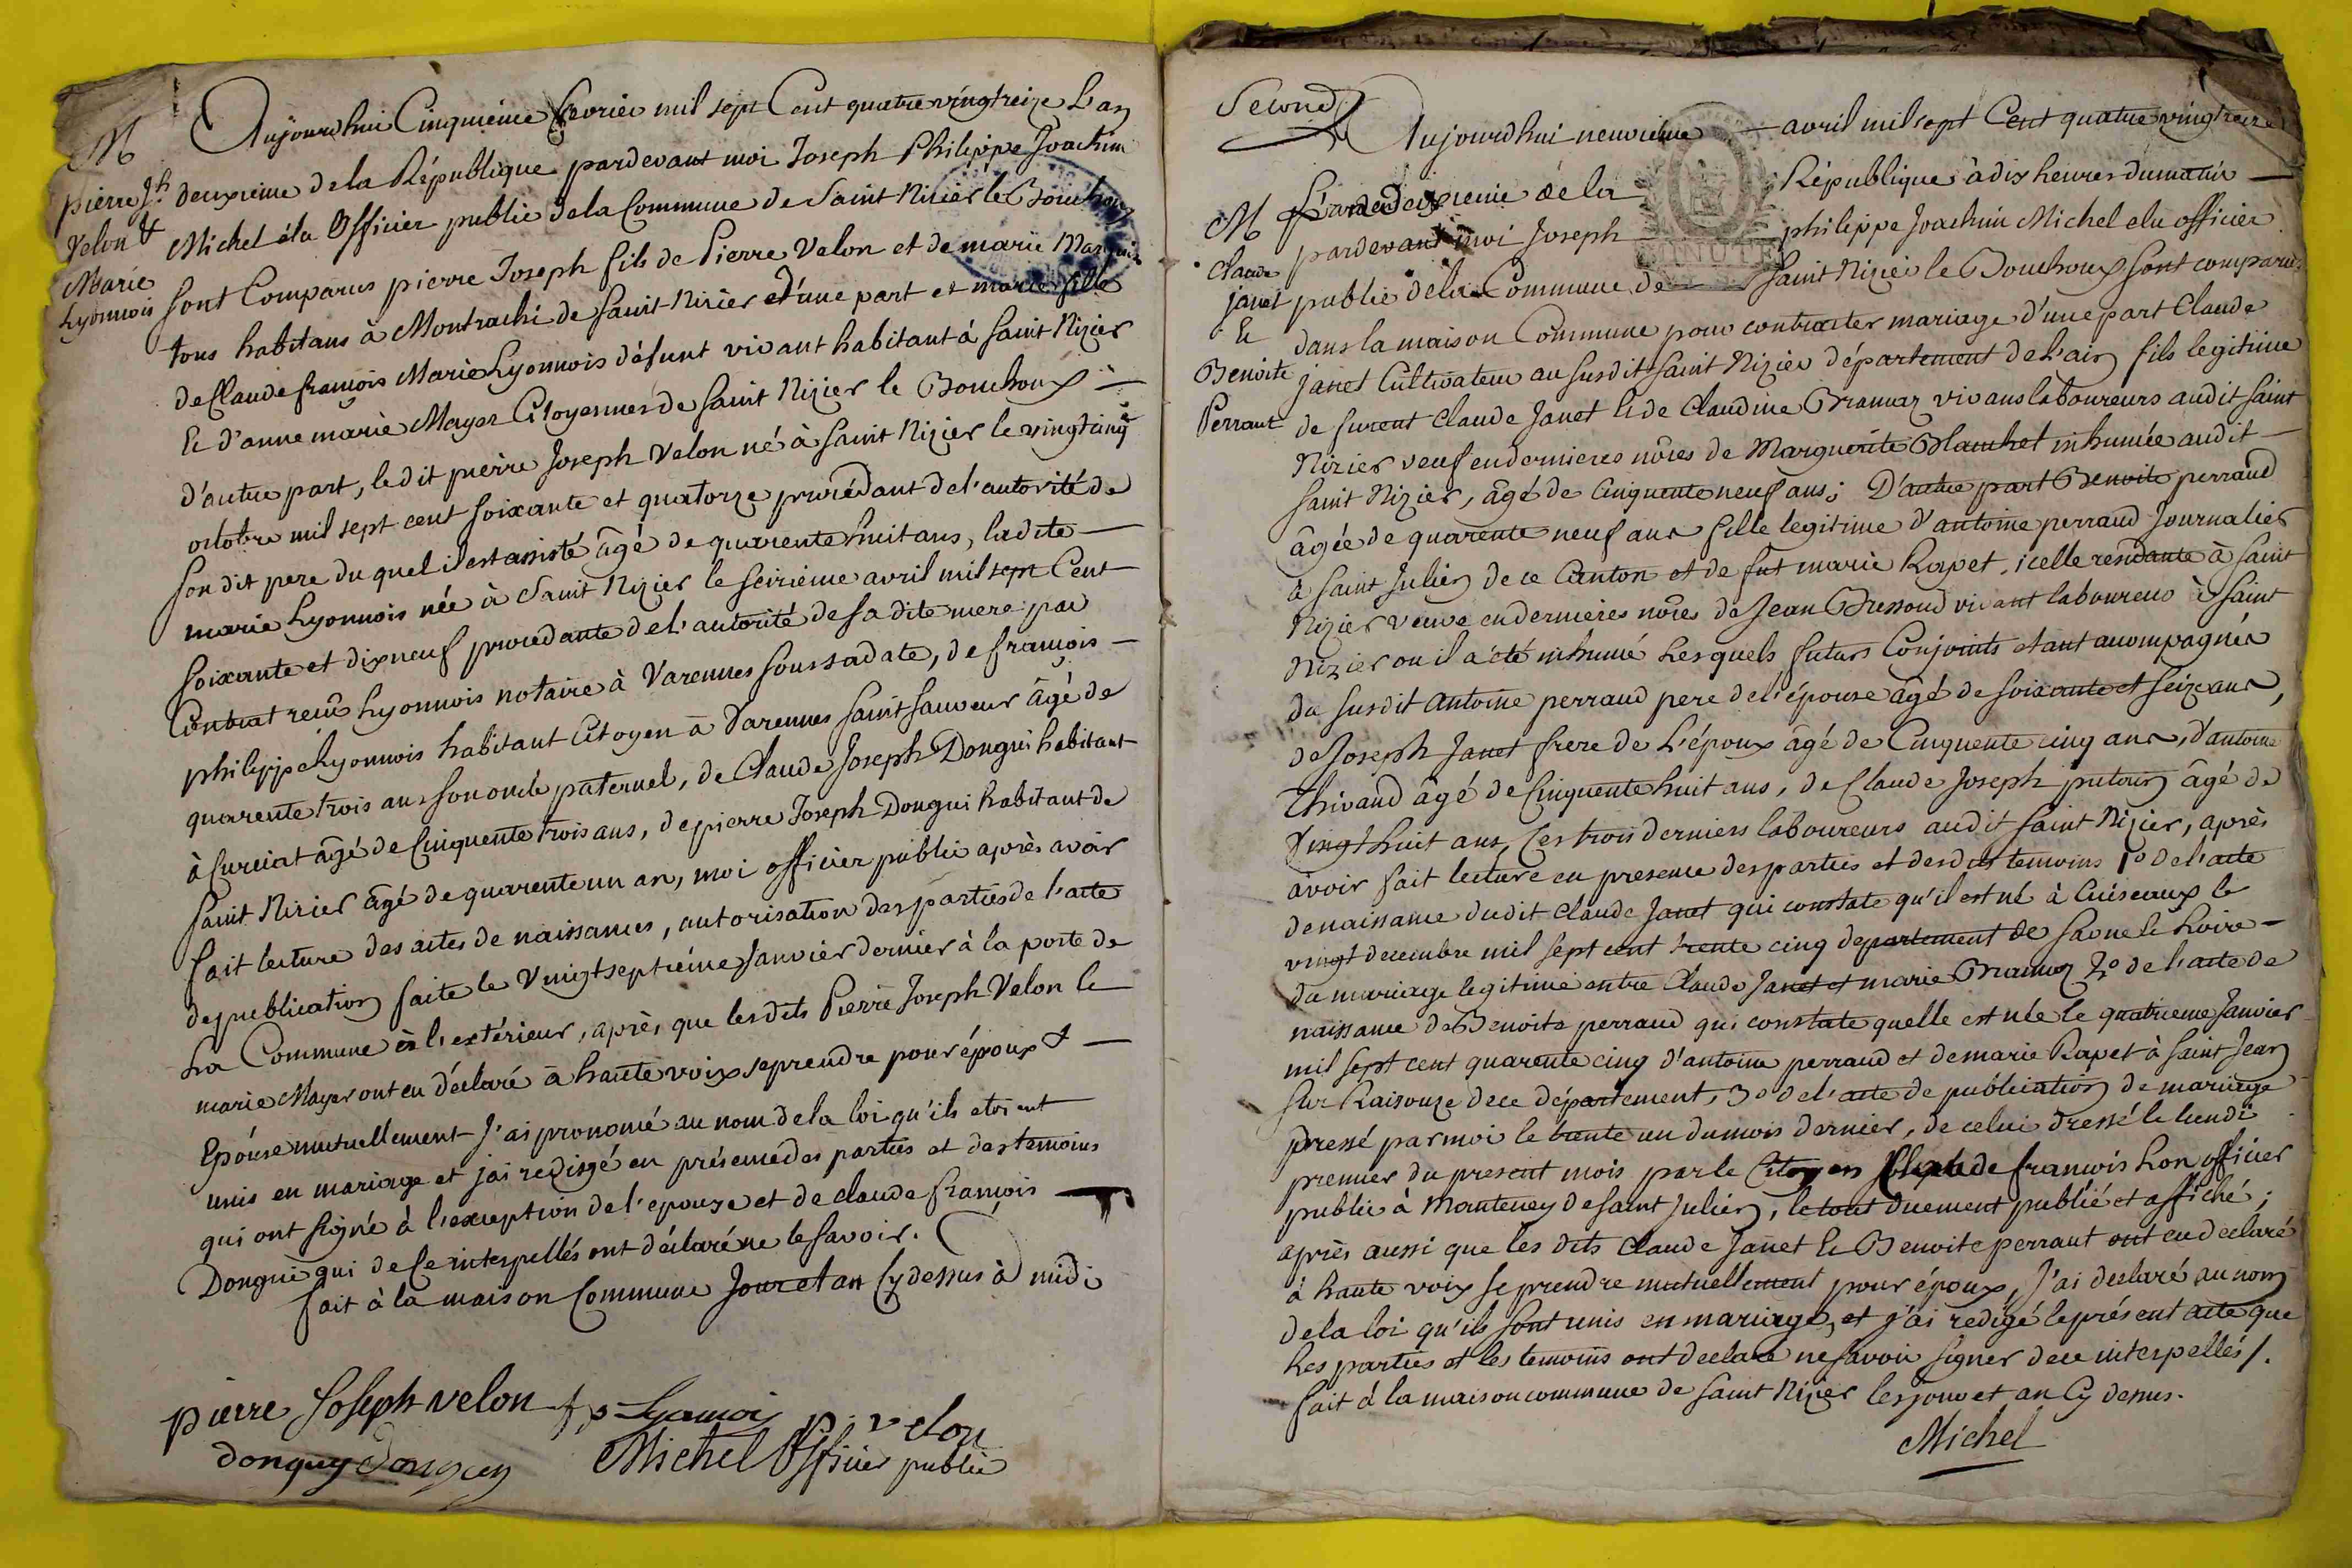 M
pierre Jh
Velon &
Marie
Lyonnois
Aujourdhui Cinquieme fevrier mil sept Cent quatre vingt treize L'an
deuxieme de la République pardevant moi Joseph Philippe Joachim
Michel élu Officier public de la Commune de Saint Nizier le Bouchoux
sont Comparus pierre Joseph fils de Pierre Velon et de marie
tous habitans à Montrachi de saint Nizier d'une part et marie fille
de Claude françois Marie Lyonnois défunt vivant habitant à saint Nizier
Et d'anne marie Mayer Citoyennes de saint Nizier le Bouchoux
d'autre part, le dit pierre Joseph Velon né à saint Nizier le vingt cinq
octobre mil sept cent soixante et quatorze procédant de l'autorité de
son dit pere du quel il est assisté âgé de quarente huit ans, ladite
marie Lyonnois née à saint Nizier le seizième avril mil sept Cent
soixante et dix neuf procedante de l'autorité de sa dite mere par
Contrat recu Lyonnois notaire à Varennes sous sa date, de françois
philippe Lyonnois habitant Citoyen à Varennes saint sauveur âgé de
quarente trois ans son oncle paternel, de Claude Joseph Dongui habitant
à Curciat âgé de Cinquente trois ans, de pierre Joseph Dongui habitant de
saint Nizier âgé de quarente un an, moi officier public après avoir
fait lecture des actes de naissances, autorisation des parties de l'acte
de publication faite le Vingt septième Janvier dernier à la porte de
La Commune à l'extérieur, après que lesdits Pierre Joseph Velon le
marie Mayer ont eu déclaré à haute voix se prendre pour époux &
Epouse mutuellement J'ai prononcé au nom de la loi qu'ils etoient
unis en mariage et j'ai redigé en présence des parties et des temoins
qui ont signé à l'exception de l'epouse et de claude françois
Dongui qui de Ce interpellés ont déclaré ne le savoir.
fait à la maison Commune Jour et an Cy dessus à midi
pierre Joseph velon f p Lyonnois
p. velon
donguy Donguy Michel Officier public
Second
M
Claude
janet
Et
Benoite
Perraut
Aujourdhui neuvieme avril mil sept Cent quatre vingt treize
L'an deuxieme de la République à dix heures du matin
pardevant moi Joseph philippe Joachim Michel elu officier
MINUTE
public de la Commune de saint Nizier le Bouchoux sont comparus
dans la maison Commune pour contracter mariage d'une part Claude
janet Cultivateur au susdit saint Nizier département de L'ain fils legitime
de furent Claude Janet Et de Claudine Bramaz vivans laboureurs audit saint
Nizier veuf en dernieres nôces de Marguerite Blanchet inhumée audit
saint Nizier, âgé de Cinquente neuf ans; D'autre part Benoite perraud
âgée de quarente neuf ans fille legitime d'antoine perraud Journalier
à saint Julien de ce Canton et de fut marie Rapet, icelle residante à saint
Nizier veuve en dernieres nôces de Jean Bressoud vivant laboureur à saint
Nizier ou il a été inhumé Lesquels futurs Conjoints etant acompagnés
du susdit antoine perraud pere de l'épouse âgé de soixante et seize ans,
de Joseph Janet frere de L'époux âgé de Cinquente cinq ans, d'antoine
Thivaud âgé de Cinquente huit ans, de Claude Joseph putoury âgé de
Vingt huit ans, Ces trois derniers laboureurs audit saint Nizier, après
avoir fait lecture en presence des parties et desdits temoins 1° de l'acte
de naissance dudit claude Janet qui constate qu'il est né à Cuiseaux le
vingt decembre mil sept cent trente cinq departement de saone le Loire
du mariage legitime entre Claude Janet et marie Bramaz 2° de l'acte de
naissance de Benoite perraud qui constate quelle est née le quatrieme Janvier
mil sept cent quarente cinq d'antoine perraud et de marie Rapet à saint Jean
sur Raisouze de ce département, 3° de l'acte de publication de mariage
dressé par moi le trente un du mois dernier, de celui dressé le lundi
premier du present mois par le Citoyen de francois Lon officier
public à Manteney de saint Julien, le tout duement publié et affiché;
après aussi que les dits claude Janet Et Benoite perraut ont eu declaré
à haute voix se prendre mutuellement pour époux, J'ai declaré au nom
de la loi qu'ils sont unis en mariage, et j'ai redigé le présent acte que
Les parties et les temoins ont declaré ne savoir signer de ce interpellés /.
fait à la maison commune de saint Nizier les jour et an Cy dessus.
Michel